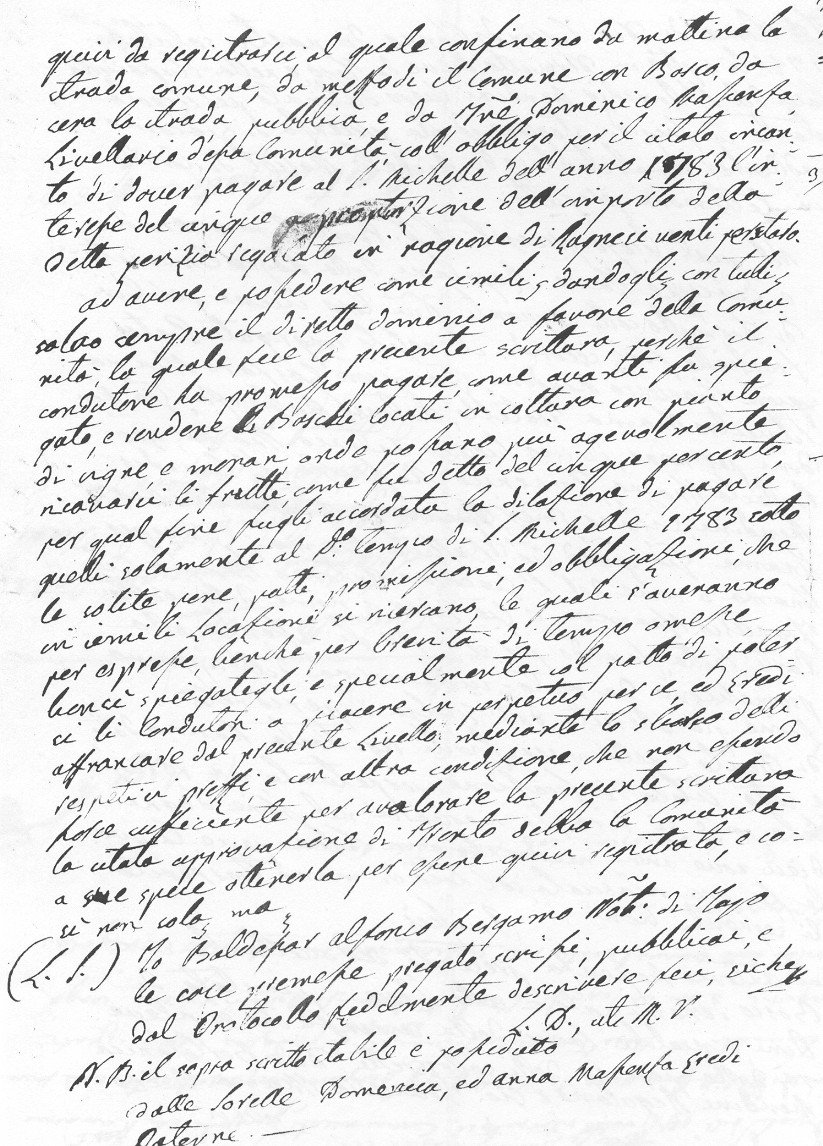 quivi da registrarsi, al quale confinano da mattina la
strada comune, da mezzodì il Comune con Bosco, da
cera la strada pubblica, e da Dominico Massenza
Livellario d'essa Comunità coll'obbligo per il citato incan-
to di dover pagare al S. Michelle dell'anno 1783 l'in-
teresse del cinque a proporzione dell'importo della
detta perizia regolato in ragione di Ragnesi venti perstaro.
ad avere, e possedere come simili, dandogli con tutti,
salvo sempre il diretto dominio a favore della Comu-
nità, la quale fece la presente scrittura, perchè il
condutore ha promesso pagare, come avanti fu spie-
gato, e rendere li Boschi locati in coltura con pianto
di vigne e morari onde possano più agevolmente
ricavarsi li frutti, come fu detto del cinque per cento
per qual fine fugli accordata la dilazione di pagare
quelli solamente al d.o tempo di S. Michelle 1783 sotto
le solite pene, patti, promissioni, ed obbligazioni, che
in simili Locazioni si ricercano, le quali s'averanno
per espresse, benchè per brevità di tempo omesse
bensì spiegategli, e specialmente col patto di poter
si li Condutori a piacere in perpetuo per se ed Eredi
affrancare dal presente Livello, mediante lo sborso delli
respetivi prezzi, e con altra condizione, che non essendo
forse sufficiente per avalorare la presente scrittura
la citata approvazione di Trento debba la Comunità
a sue spese ottenerla per essere quivi registrata, e co-
sì non sola, ma
(L. S.) Io Baldessar alfonso Bergamo Nots. di
le cose premesse pregato scrissi, pubblicai, e
dal Protocollo fedelmente descrivere feci, siche
L. D., ut M. P.
N. B. il sopra scritto stabile è posseduto
dalle sorelle Domenica, ed anna Massenza Eredi
Paterne.